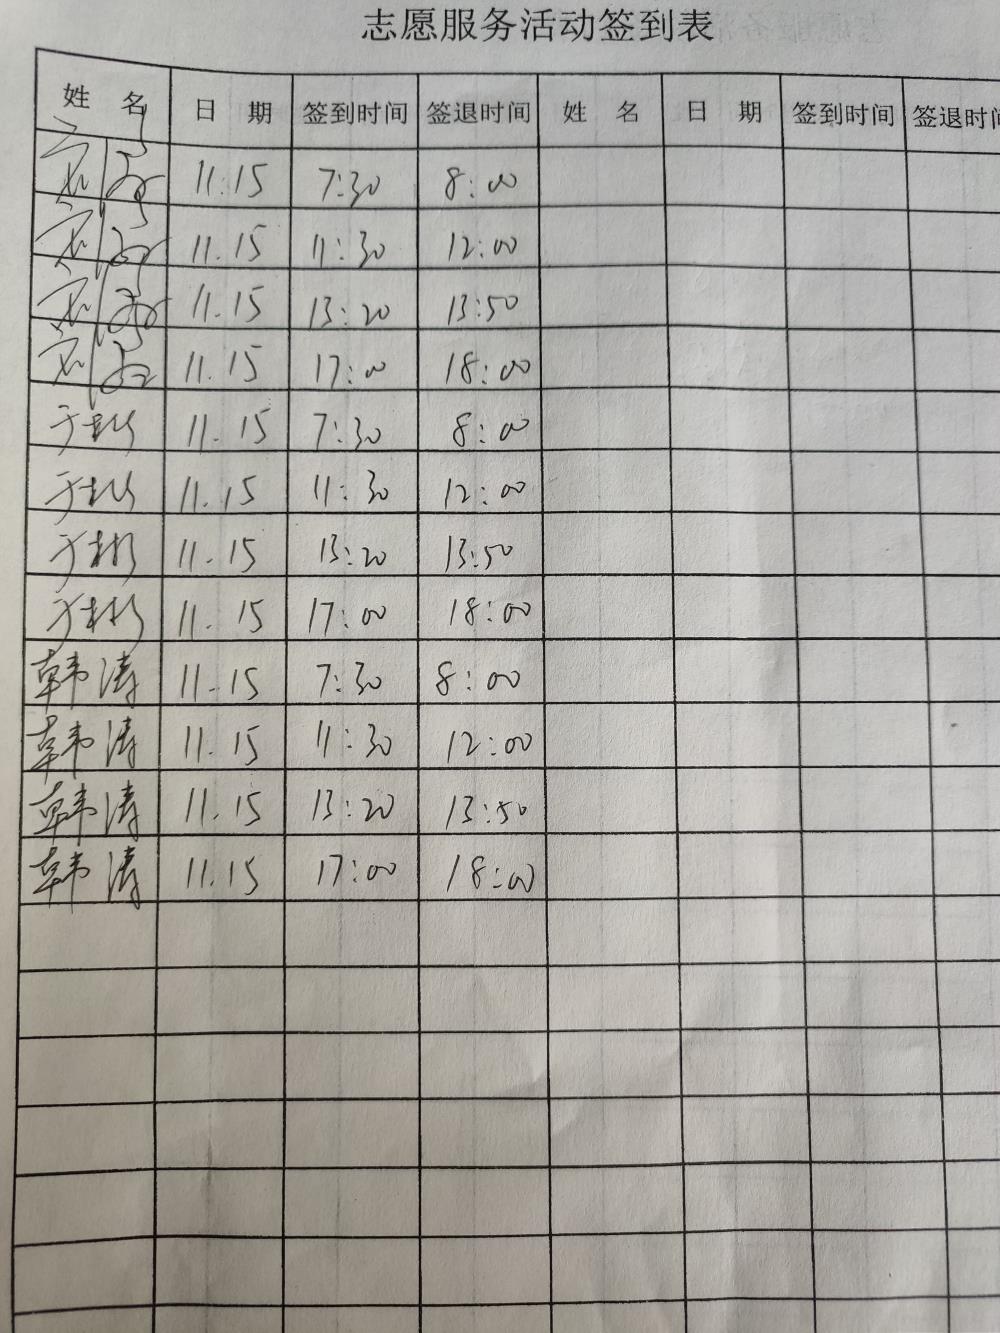 志愿服务活动签到表
姓 名 日 期 签到时间 签退时间 姓 名 日 期 签到时间 签退时间
11.15 7:30 8:00
11.15 11:30 12:00
11.15 13:20 13:50
11.15 17:00 18:00
于彬 11.15 7:30 8:00
于彬 11.15 11:30 12:00
于彬 11.15 13:20 13:50
于彬 11.15 17:00 18:00
韩涛 11.15 7:30 8:00
韩涛 11.15 11:30 12:00
韩涛 11.15 13:20 13:50
韩涛 11.15 17:00 18:00